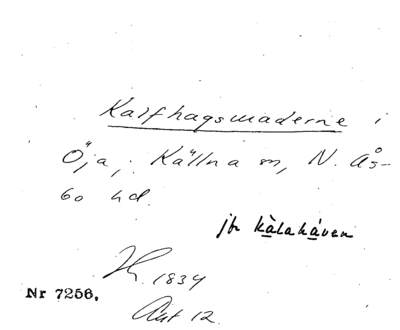 Kalfhagsmaderne i
Öja, Källna sn, N. Ås-
bo hd.
jfr kàlaháven
1834
Nr 7256.
Akt 12.